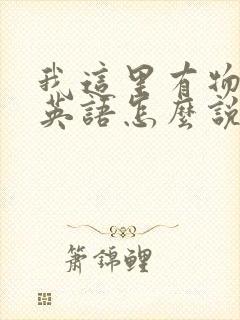 我這里有物
英語怎麼說
簫錦鯉